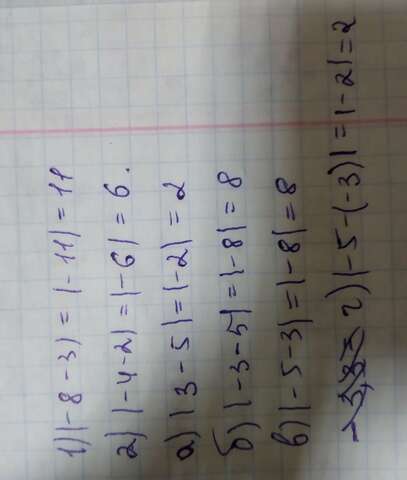 1) |-8-3| = |-11| = 11
2) |-4-2| = |-6| = 6.
а) |3-5| = |-2| = 2
б) |-3-5| = |-8| = 8
в) |-5-3| = |-8| = 8
г) |-5-(-3)| = |-2| = 2